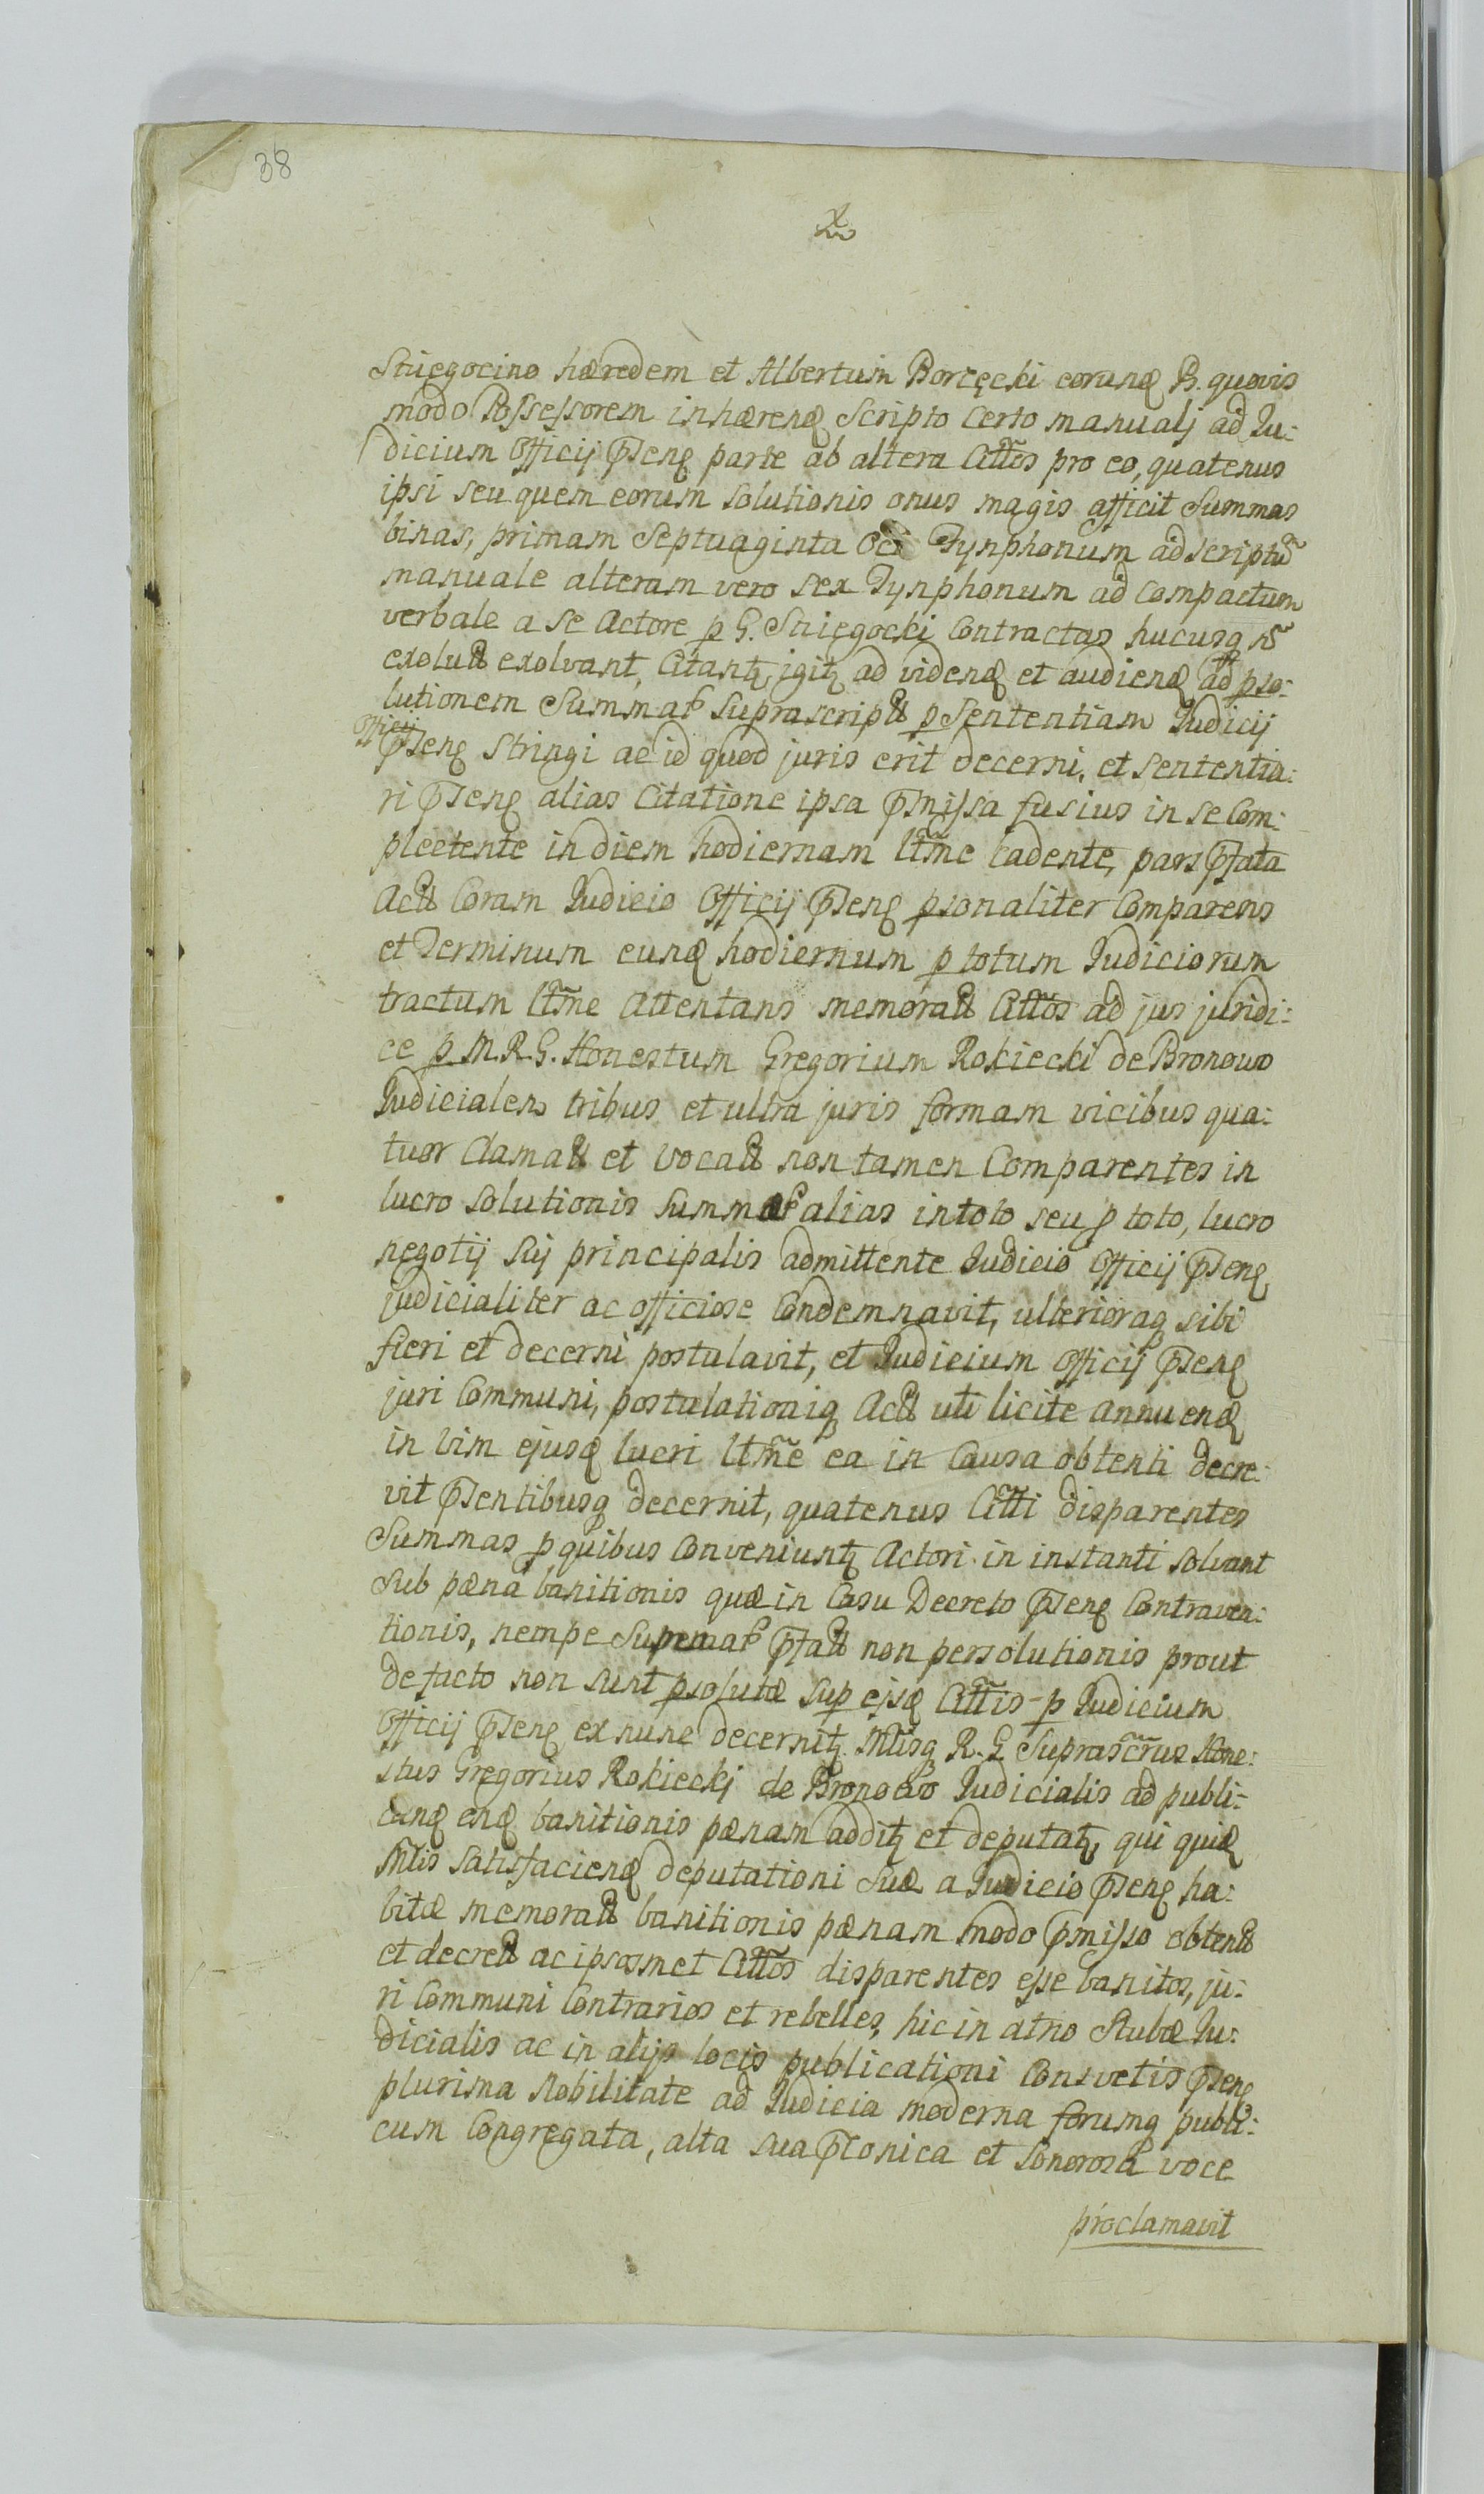 38
Stiegocino hæredem et Albertum Borzęcki eorundꝫ B. quovis
modo Possessorem inhærendꝫ Scripto Certo manualj ad Ju:
dicium Officij p̃sentꝫ parte ab altera Citt̃os pro eo, quatenus
ipsi seu quem eorum solutionis onus magis afficit Summas
binas, primam Septuaginta Tynphonum ad scriptũ
manuale alteram vero sex Tynphonum ad Compactum
verbale a se Actore ꝑ G. Stiegocki Contractas hucusqꝫ nõ
exolutt exolvant, Citantꝫ igitꝫ ad videndꝫ et audiendꝫ ad ꝑso:
lutionem Summaꝝ suprascriptt ꝑ Sententiam Judicij
Officij
p̃sentꝫ stringi ac id quod juris erit decerni, et sententia:
ri p̃sentꝫ alias Citatione ipsa p̃missa fusius in se Com:
plectente in diem hodiernam ltt̃me cadente, pars p̃fata
Actt Coram Judicio Officij p̃sentꝫ ꝑsonaliter Comparens
et Terminum eundꝫ hodiernum ꝑ totum Judiciorum
tractum ltt̃me Attentans memoratt Citt̃os ad jus juridi:
ce ꝑ M. R. G. Honestum Gregorium Rokiecki de Bronowo
Judicialem tribus et ultra juris formam vicibus qua:
tuor Clamatt et vocatt non tamen Comparentes in
lucro solutionis summaꝝ alias in toto seu ꝑ toto, lucro
negotij sij principalis admittente Judicio Officij p̃sentꝫ
judicialiter ac officiose Condemnavit, ulterioraqꝫ sibi
fieri et decerni postulavit, et Judicium Officij p̃sentꝫ
juri Communi, postulationiqꝫ Actt uti licite annuendꝫ
in vim ejusdꝫ lucri ltt̃me ea in Causa obtenti decre:
vit p̃sentibusqꝫ decernit, quatenus Citt̃i disparentes
Summas ꝑ quibus Conveniuntꝫ Actori in instanti solvant
sub pæna banitionis quæ in Casu Decreto p̃sentꝫ Contraven:
tionis, nempe p̃fatt non persolutionis prout
de facto non sunt ꝑsolutæ suꝑ eisdꝫ Citt̃is ꝑ Judicium
Officij p̃sentꝫ ex nunc decernitꝫ Mltisqꝫ R. G. Suprascr̃us Hone:
stus Gregorius Rokieckj de Bronowo Judicialis ad publi:
candꝫ eandꝫ banitionis pænam additꝫ et deputatꝫ, qui quidꝫ
Mltis satisfaciendꝫ deputationi suæ a Judicio p̃sentꝫ ha:
bitæ memoratt banitionis pænam modo p̃misso obtentt
et decrett ac ipsosmet Citt̃os disparentes esse banitos, ju:
ri Communi Contrarios et rebelles, hic in atrio Stubæ Ju:
dicialis ac in alijs locis publicationi Consvetis p̃sentꝫ
plurima Nobilitate ad Judicia moderna forumqꝫ publi:
cum Congregata, alta sua p̃conica et sonorosa voce
proclamavit